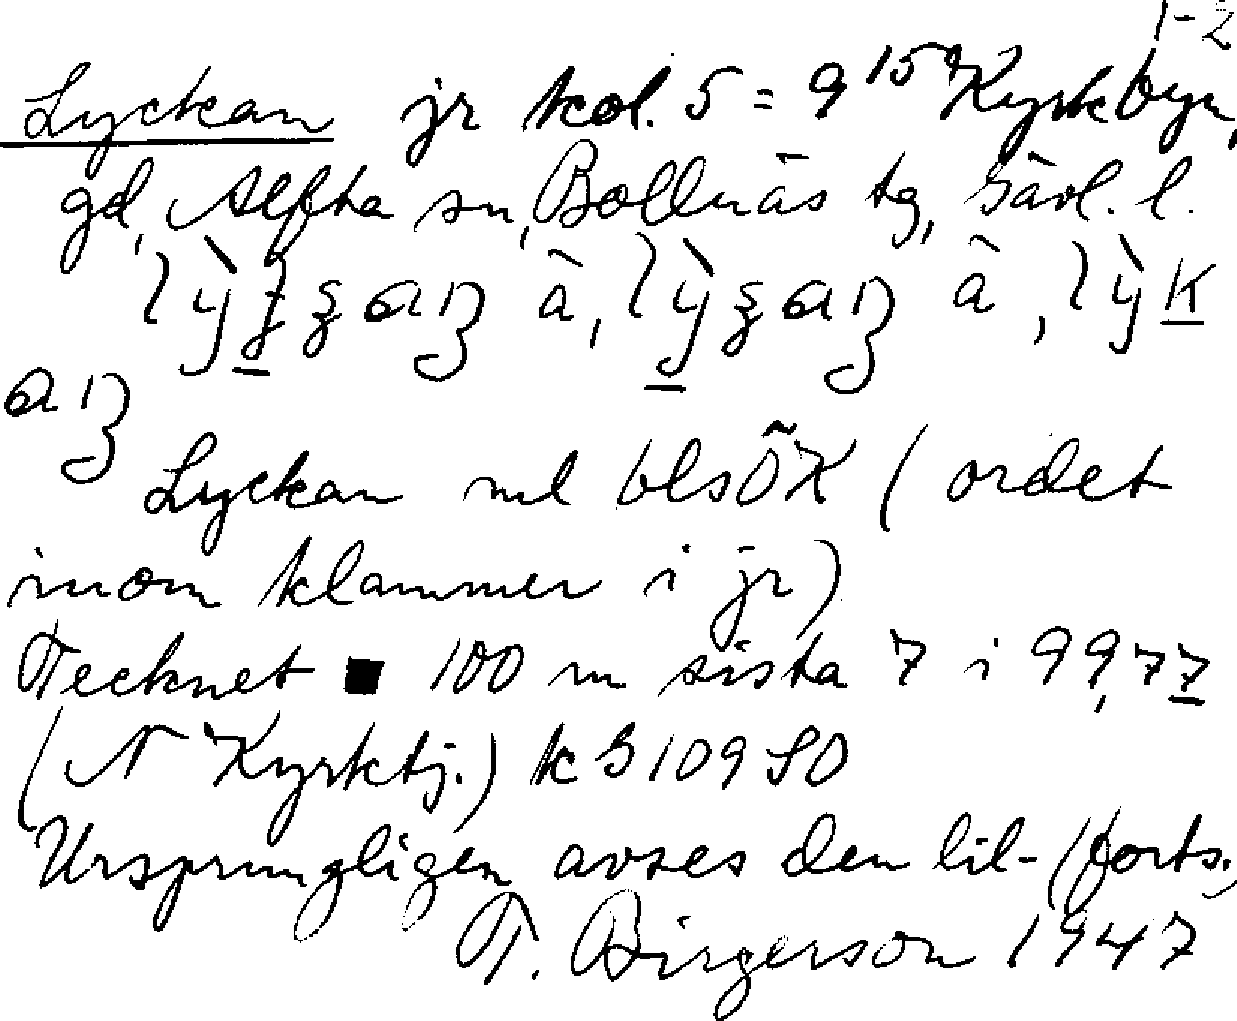 1-2
Lyckan jr kol. 5 = 9 15 Kyrkbyn,
gd, Alfta sn, Bollnäs tg, Gävl. l.
à, à,
Lyckan ml blsÖK (ordet
inom klammer i jr)
Tecknet ■ 100 m sista 7 i 99,77
(N Kyrktj.) k G 109 SO
Ursprungligen avses den lil- (forts.)
T. Birgerson 1947